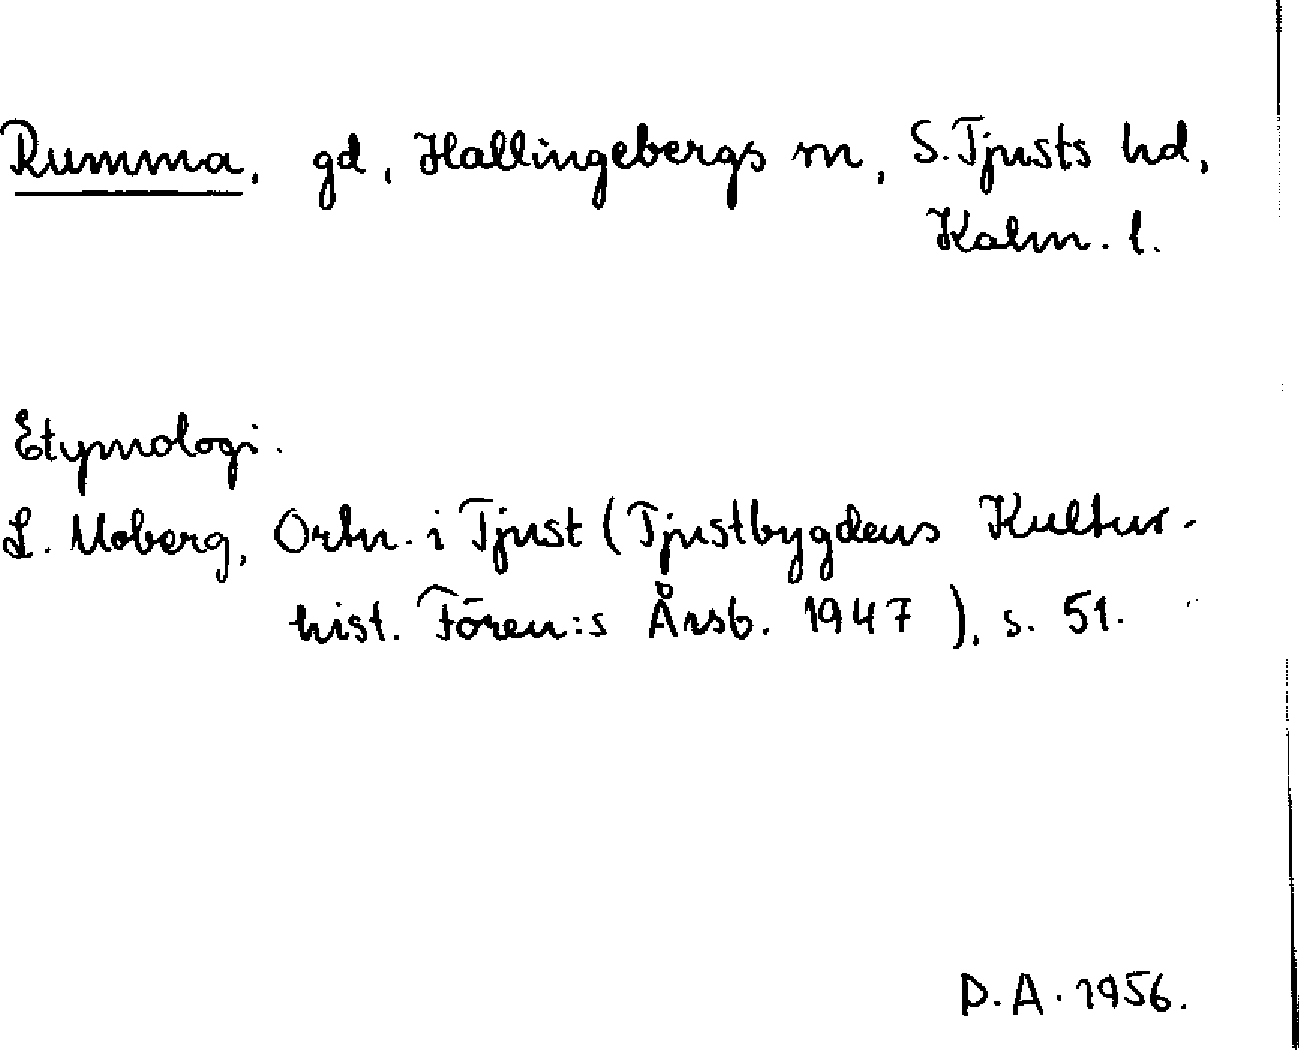 Rumma, gd, Hallingebergs sn, S. Tjusts hd,
Kalm. l.
Etymologi.
L. Moberg, Ortn. i Tjust (Tjustbygdens Kultur-
hist. Fören:s Årsb. 1947), s. 51.
D.A. 1956.